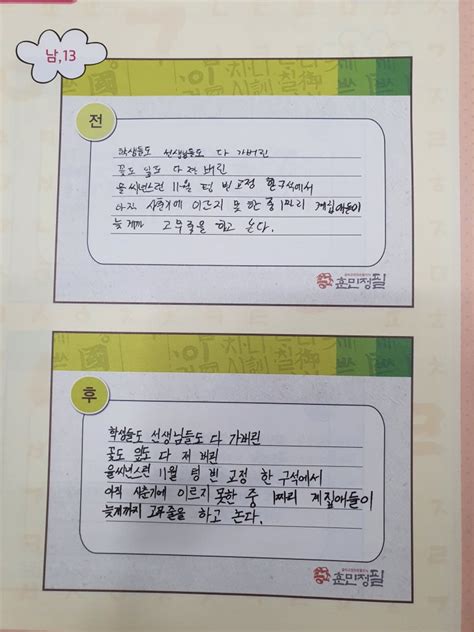 남,13
전
학생들도 선생님들도 다 가버린
꽃도 잎도 다 져 버린
을씨년스런 11월 텅 빈 교정 한 구석에서
아직 사춘기에 이르지 못한 중1짜리 계집애들이
늦게까지 고무줄을 하고 논다.
훈민정필
후
학생들도 선생님들도 다 가버린
꽃도 잎도 다 저 버린
을씨년스런 11월 텅 빈 교정 한 구석에서
아직 사춘기에 이르지 못한 중 1짜리 계짚애들이
늦게까지 고무줄을 하고 논다.
훈민정필